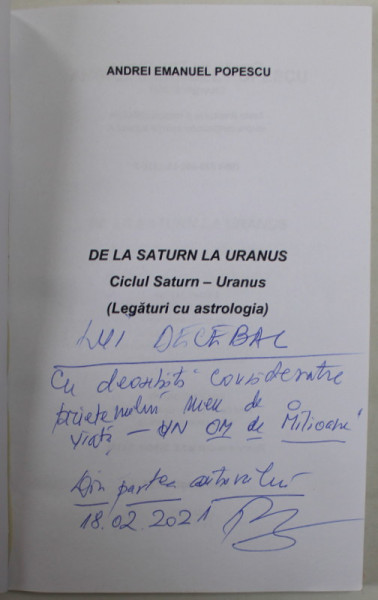 ANDREI EMANUEL POPESCU
DE LA SATURN LA URANUS
Ciclul Saturn – Uranus
(Legături cu astrologia)
LUI DECEBAL
Cu deosebită considerație
prietenului meu de
viață – UN OM de "Milioane"
Din partea autorului
18.02.2021